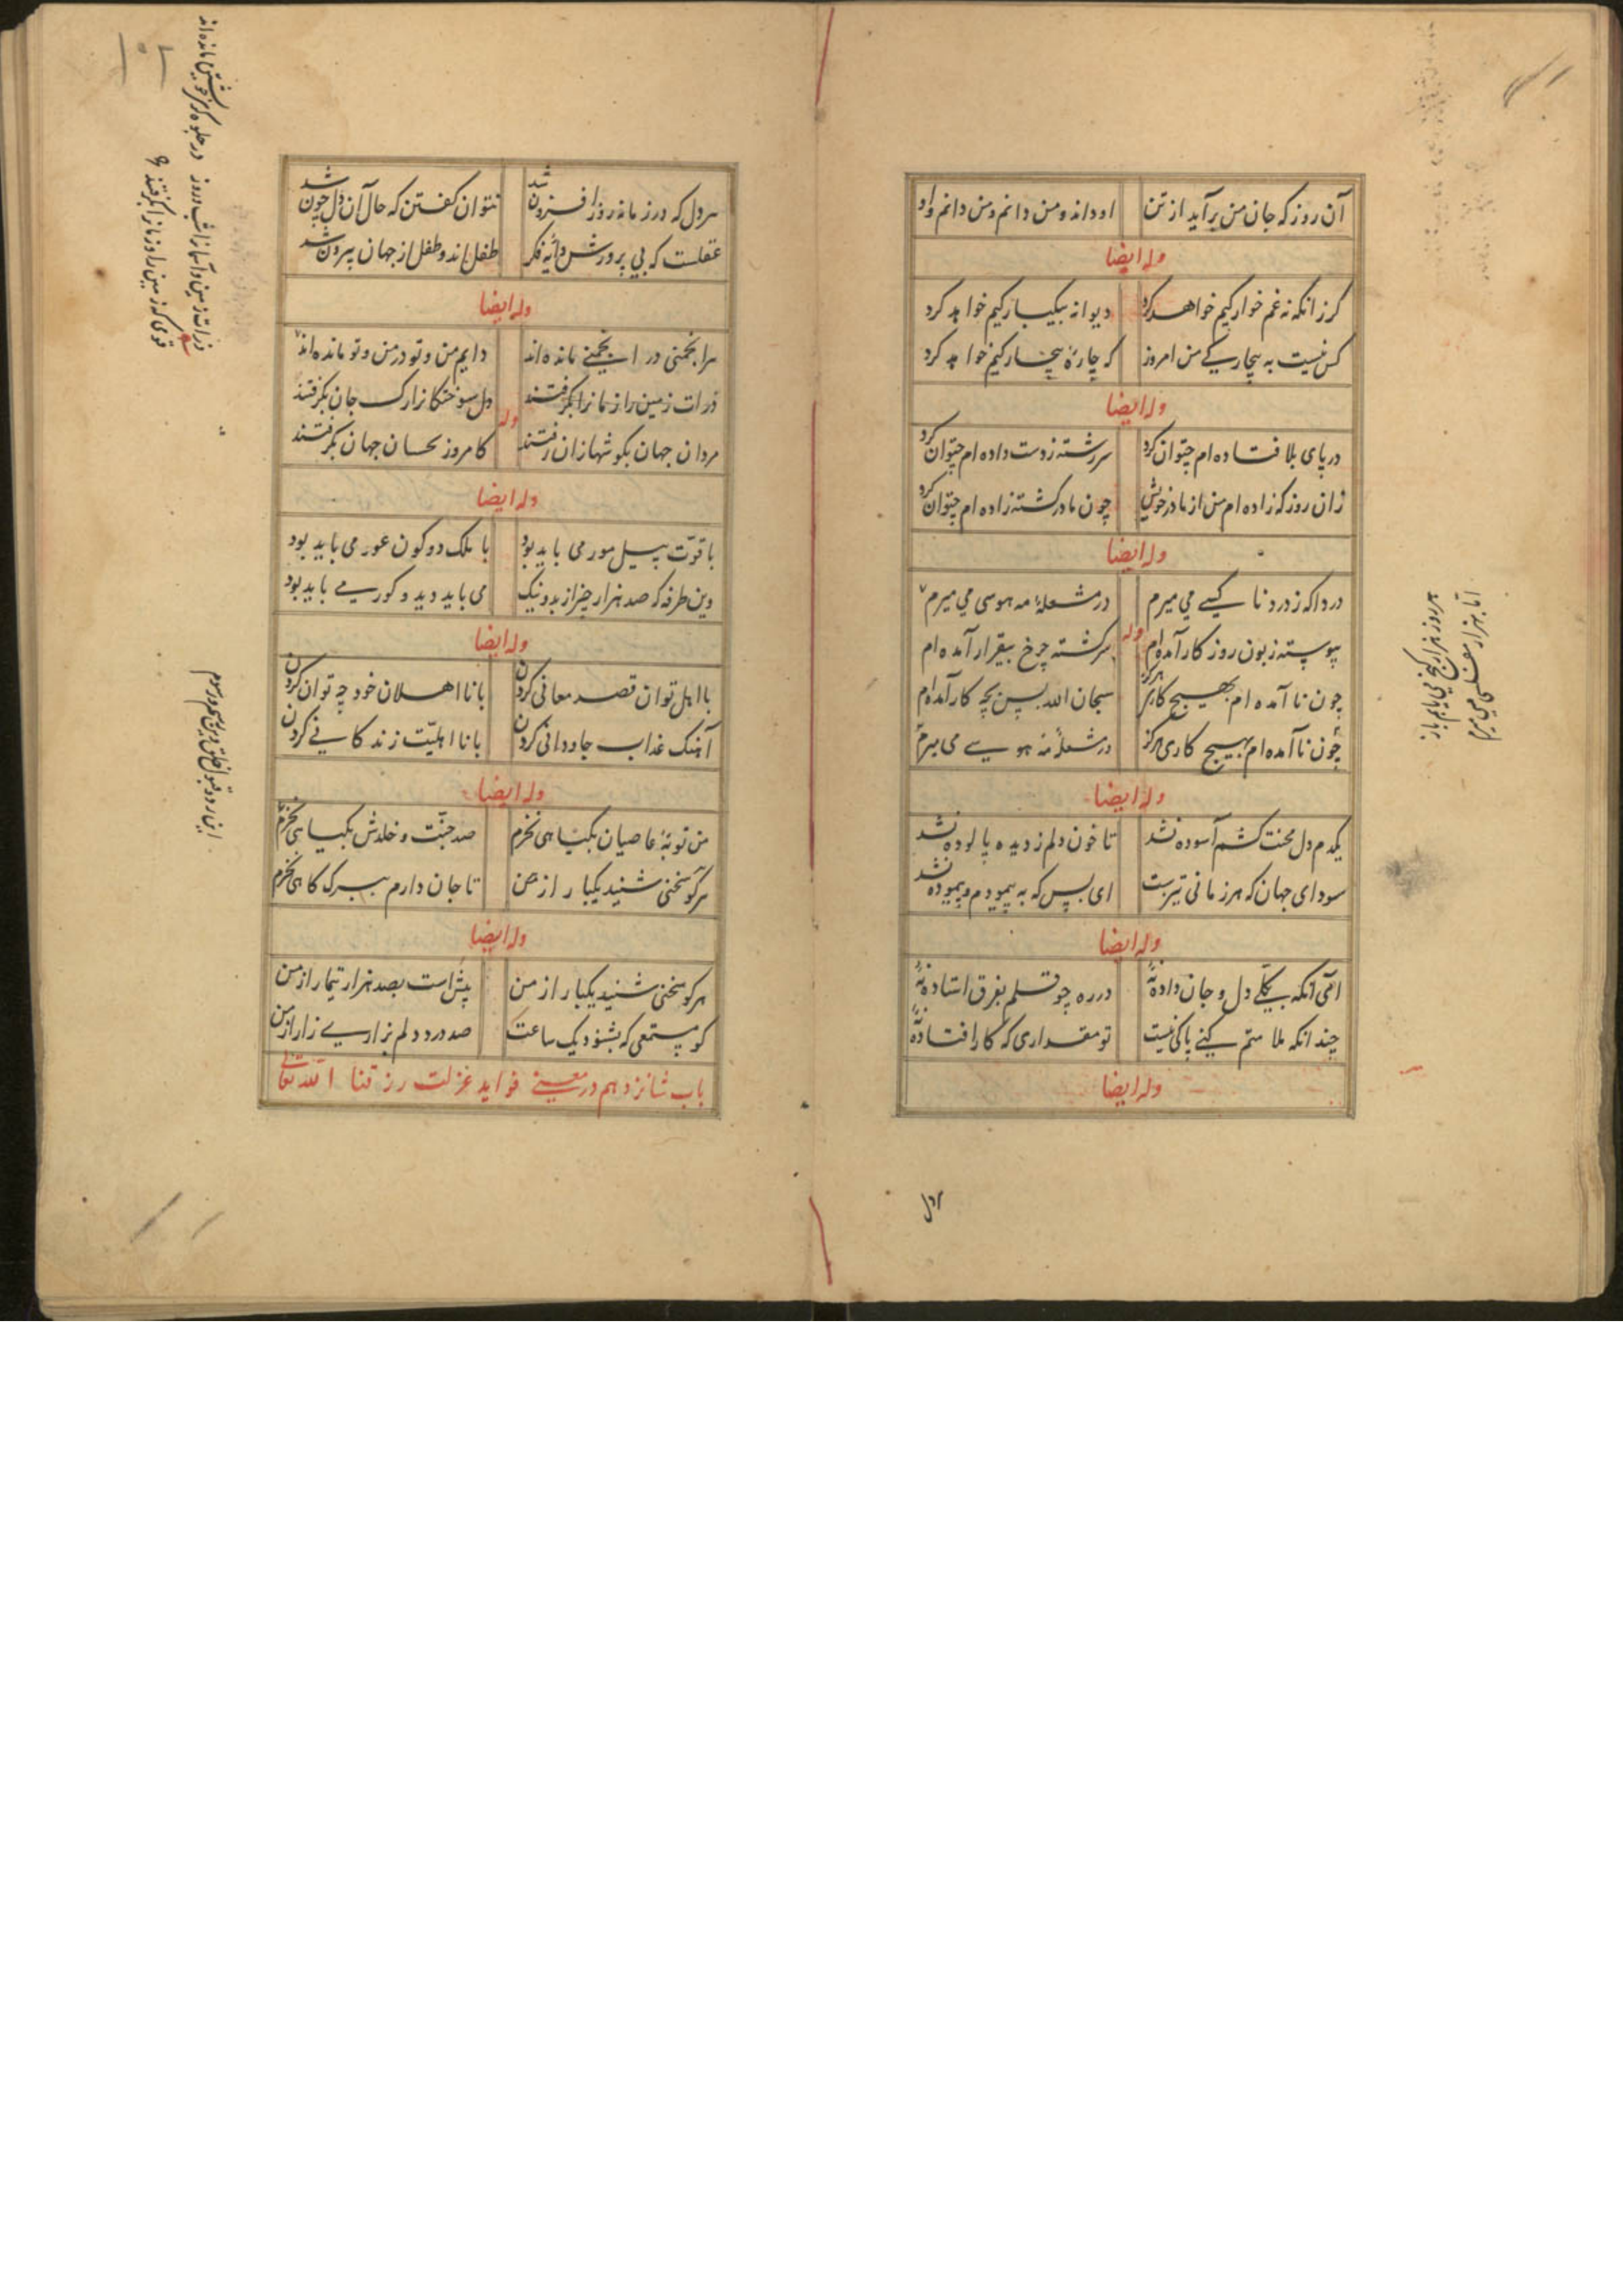 آن روز که جان من برآید از تن
او داند و من دانم و من دانم و او
وله ایضا
کر زانکه نه غم خوارکیم خواهد کرد
دیوانه بیکبارکیم خواهد کرد
کس نیست به بیچارکی من امروز
که چارهٔ بیچارکیم خواهد کرد
وله ایضا
در پای بلا فتاده ام چتوان کرد
سررشته ز دست داده ام چتوان کرد
زان روز که زاده ام من از مادر خویش
چون مادر کشته زاده ام چتوان کرد
وله ایضا
دردا که ز درد ناکسی می میرم
در مشعلهٔ مه هوسی می میرم
وله
پیوسته زبون روزکار آمده ام
سرکشته چرخ بیقرار آمده ام
چون نا آمده ام بهیچ کاری هرکز
سبحان الله پس بچه کار آمده ام
چون نا آمده ام بهیچ کاری هرکز
در مشعلهٔ مه هوسی می میرم
وله ایضا
یکدم دل محنت کشم آسوده نشد
تا خون دلم ز دیده پالوده نشد
سودای جهان که هر زمانی تیرست
ای بس که به پیمودم و پیموده نشد
وله ایضا
ای آنکه بکلی دل و جان دادهٔ نه
در ره چو قلم بفرق استادهٔ نه
چندانکه ملامتم کنی باکی نیست
تو معذوری که کار افتادهٔ نه
وله ایضا
هر دل
هر روز هزار کنج می یابم باز
اما بهزار مفلسی می میرم
هر دل که در زمانه روز افزون شد
نتوان کفتن که حال آن دل چون شد
عقلست که بی پرورش دایهٔ فکر
طفل آمد و طفل از جهان بیرون شد
وله ایضا
هر انجمنی در انجمنی مانده اند
دایم من و تو در من و تو مانده اند
وله
ذرات زمین راز ما را بکرفتند
دل سوختکانرا رک جان بکرفتند
مردان جهان بکوشها زان رفتند
کامروز خسان جهان بکرفتند
وله ایضا
با قوّت پیل مور می باید بود
با ملک دو کون عور می باید بود
وین طرفه که صد هزار چیز از بد و نیک
می باید دید و کور می باید بود
وله ایضا
با اهل توان قصد معانی کردن
با نا اهلان خود چه توان کردن
آهنک عذاب جاودانی کردن
با نا اهلیّت زندکانی کردن
وله ایضا
من توبهٔ عاصیان بکیاهی نخرم
صد جنّت و خلدش بکیاهی نخرم
هرکو سخنی شنید یکبار از من
تا جان دارم ببرک کاهی نخرم
وله ایضا
هرکو سخنی شنید یکبار از من
بیش است بصد هزار تیمار از من
کو مستمعی که بشنود یک ساعت
صد درد دلم بزاری زار از من
باب شانزدهم در معنی فواید عزلت رزقنا الله تعالی
ذرات زمین و آسمانرا شب و روز در جلوه کری خویشتن مانده اند
قومی که زمین را و زمانرا بکرفتند
این رد و قبول خلق و این رسم و رسوم
۱۰۲